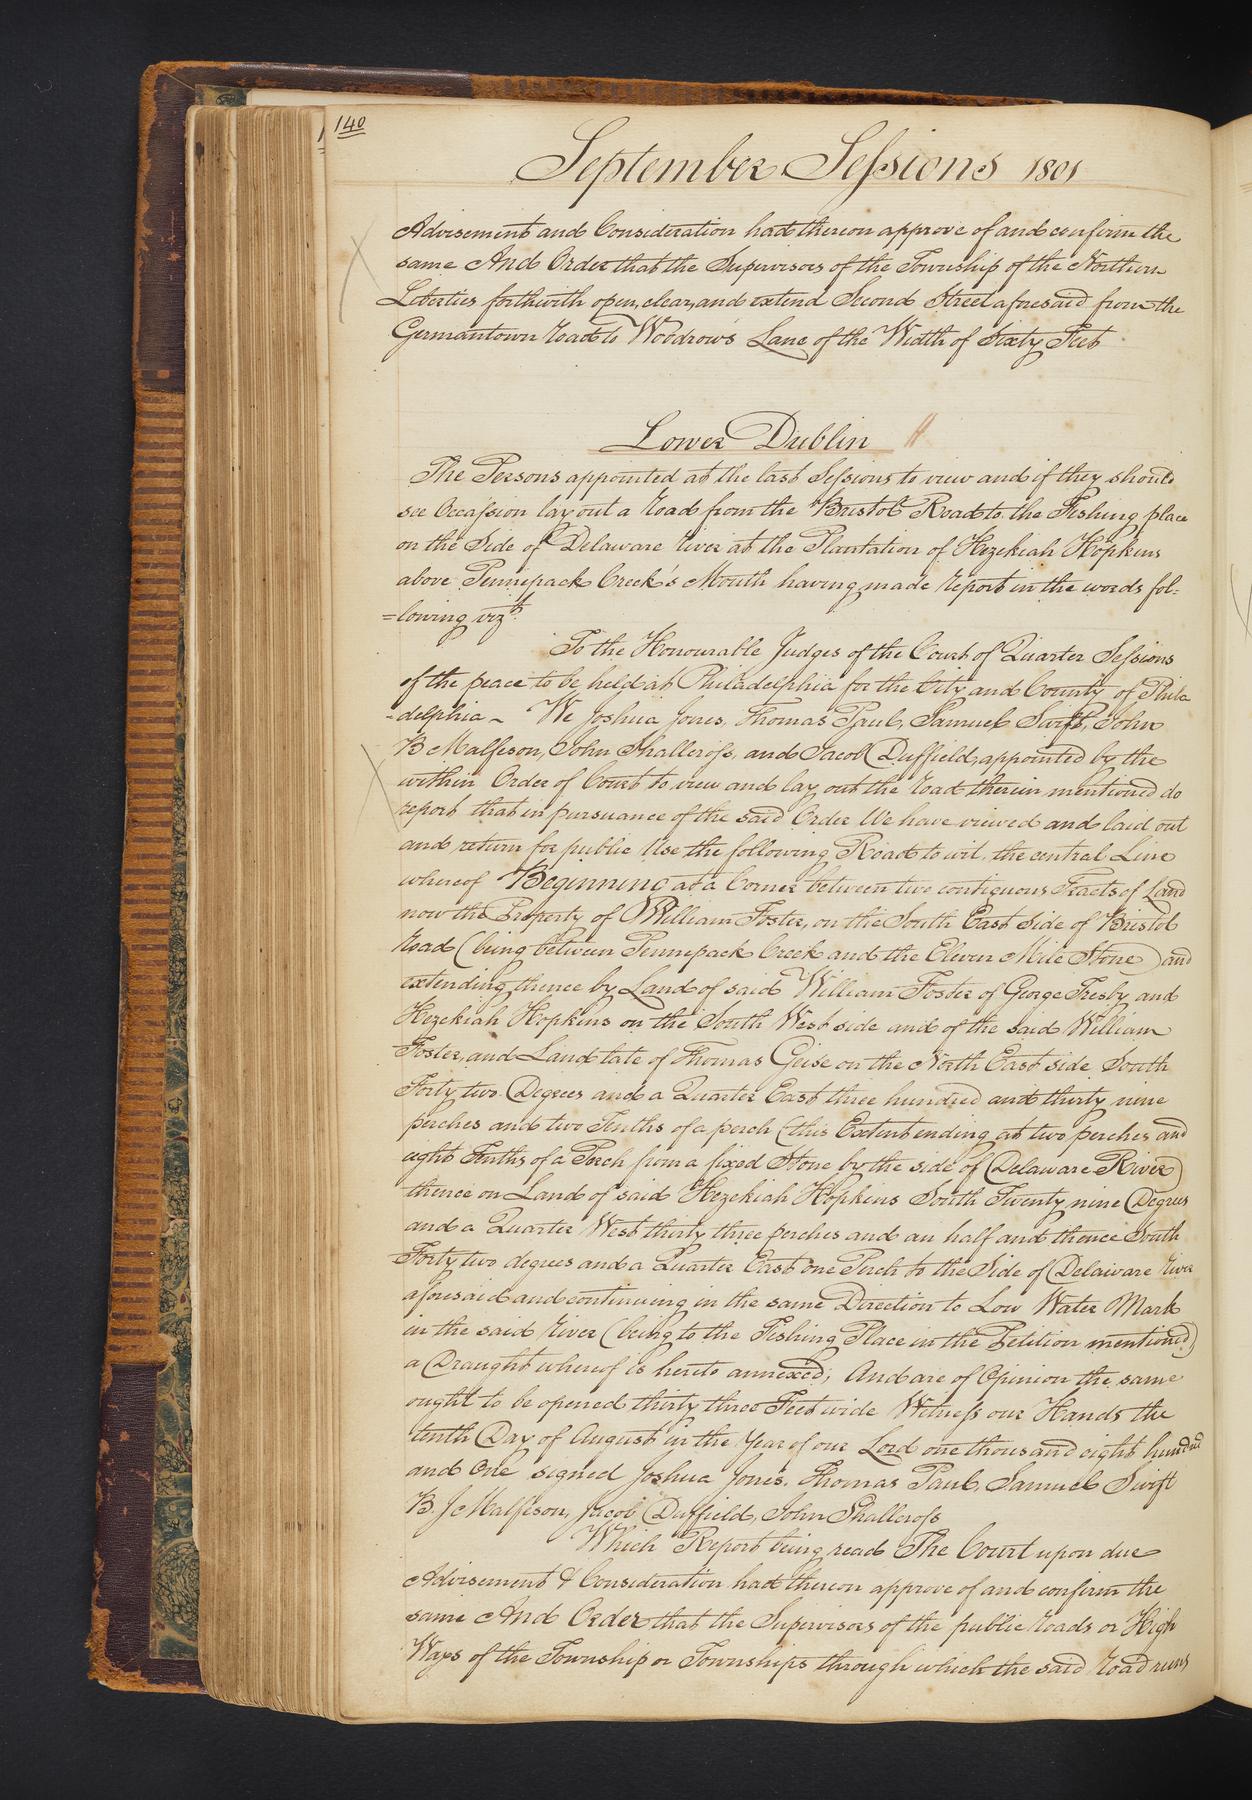 140
September Sessions 1801
Advisement and Consideration had thereon approve of and confirm the
same And Order that the Supervisors of the Township of the Northern
Liberties forthwith open, clear, and extend Second Street aforesaid from the
Germantown road to Woodrow's Lane of the Width of Sixty Feet
Lower Dublin
The Persons appointed at the last Sessions to view and if they should
see Occassion lay out a road from the Bristol Road to the Fishing place
on the Side of Delaware river at the Plantation of Hezekiah Hopkins
above Pennepack Creek's Mouth having made report in the words fol-
=lowing vizt.
To the Honourable Judges of the Court of Quarter Sessions
of the peace to be held at Philadelphia for the City and County of Phila
-delphia - We Joshua Jones, Thomas Paul, Samuel Swift, John
B Malfeson, John Shallcross, and Jacob Duffield, appointed by the
within Order of Court to view and lay out the road therein mentioned do
report that in pursuance of the said Order We have viewed and laid out
and return for public Use the following Road to wit, the central Line
whereof Beginning at a Corner between two contiguous Tracts of Land
now the Property of William Foster, on the South East Side of Bristol
road (being between Pennepack Creek and the Eleven Mile Stone) and
extending thence by Land of said William Foster of George Tresby and
Hezekiah Hopkins on the South West side and of the said William
Foster, and Land late of Thomas Geise on the North East side South
Forty two Degrees and a Quarter East three hundred and thirty nine
perches and two Tenths of a perch (this Extent ending at two perches and
eight Tenths of a Perch from a fixed Stone by the side of Delaware River)
thence on Land of said Hezekiah Hopkins South Twenty nine Degrees
and a Quarter West thirty three perches and an half and thence South
Forty two degrees and a Quarter East one Perch to the Side of Delaware river
aforesaid and continuing in the same Direction to Low Water Mark
in the said river (being to the Fishing Place in the Petition mentioned)
a Draught whereof is hereto annexed; And are of Opinion the same
ought to be opened thirty three Feet wide Witness our Hands the
tenth Day of August in the Year of our Lord one thousand eight hundred
and One signed Joshua Jones. Thomas Paul, Samuel Swift
B. J. Malfeson, Jacob Duffield, John Shallcross
Which Report being read The Court upon due
Advisement & Consideration had thereon approve of and confirm the
same And Order that the Supervisors of the public roads or High
Ways of the Township or Townships through which the said road runs